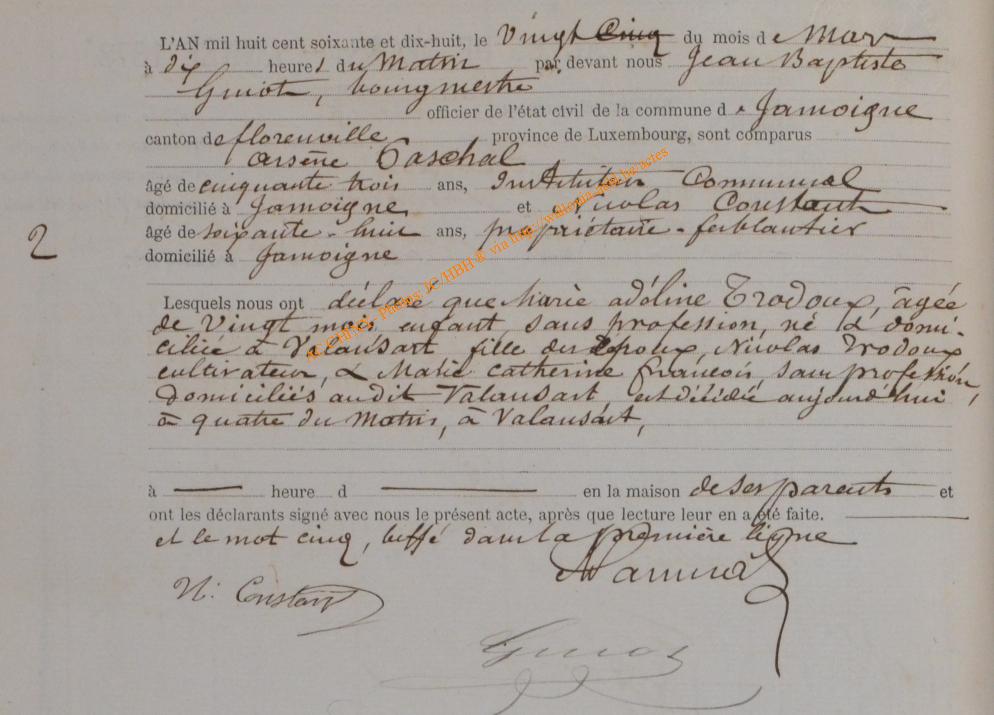 L'AN mil huit cent soixante et dix-huit, le Vingt Cinq du mois de Mars
à dix heures du Matin par devant nous Jean Baptiste
Guiot, bourgmestre
officier de l'état civil de la commune de Jamoigne
canton de florenville province de Luxembourg, sont comparus
arsène Paschal
âgé de cinquante trois ans, Instituteur Communal
domicilié à Jamoigne et Nicolas Constant
âgé de soixante-huit ans, propriétaire-ferblantier
domicilié à Jamoigne
2
Lesquels nous ont déclaré que Marie adéline Trodoux, âgée
de Vingt mois, enfant, sans profession, né & domi-
ciliée à Valansart fille des Epoux, Nicolas Trodoux
cultivateur, & Marie Catherine francois, sans profession,
domiciliés audit Valansart, est décédée aujourd'hui
à quatre du Matin, à Valansart,
à heure d en la maison de ses parents et
ont les déclarants signé avec nous le présent acte, après que lecture leur en a été faite.
et le mot cinq, biffé dans la première ligne
N. Constant
Guiot
via http://wallonia-asbl.be/actes